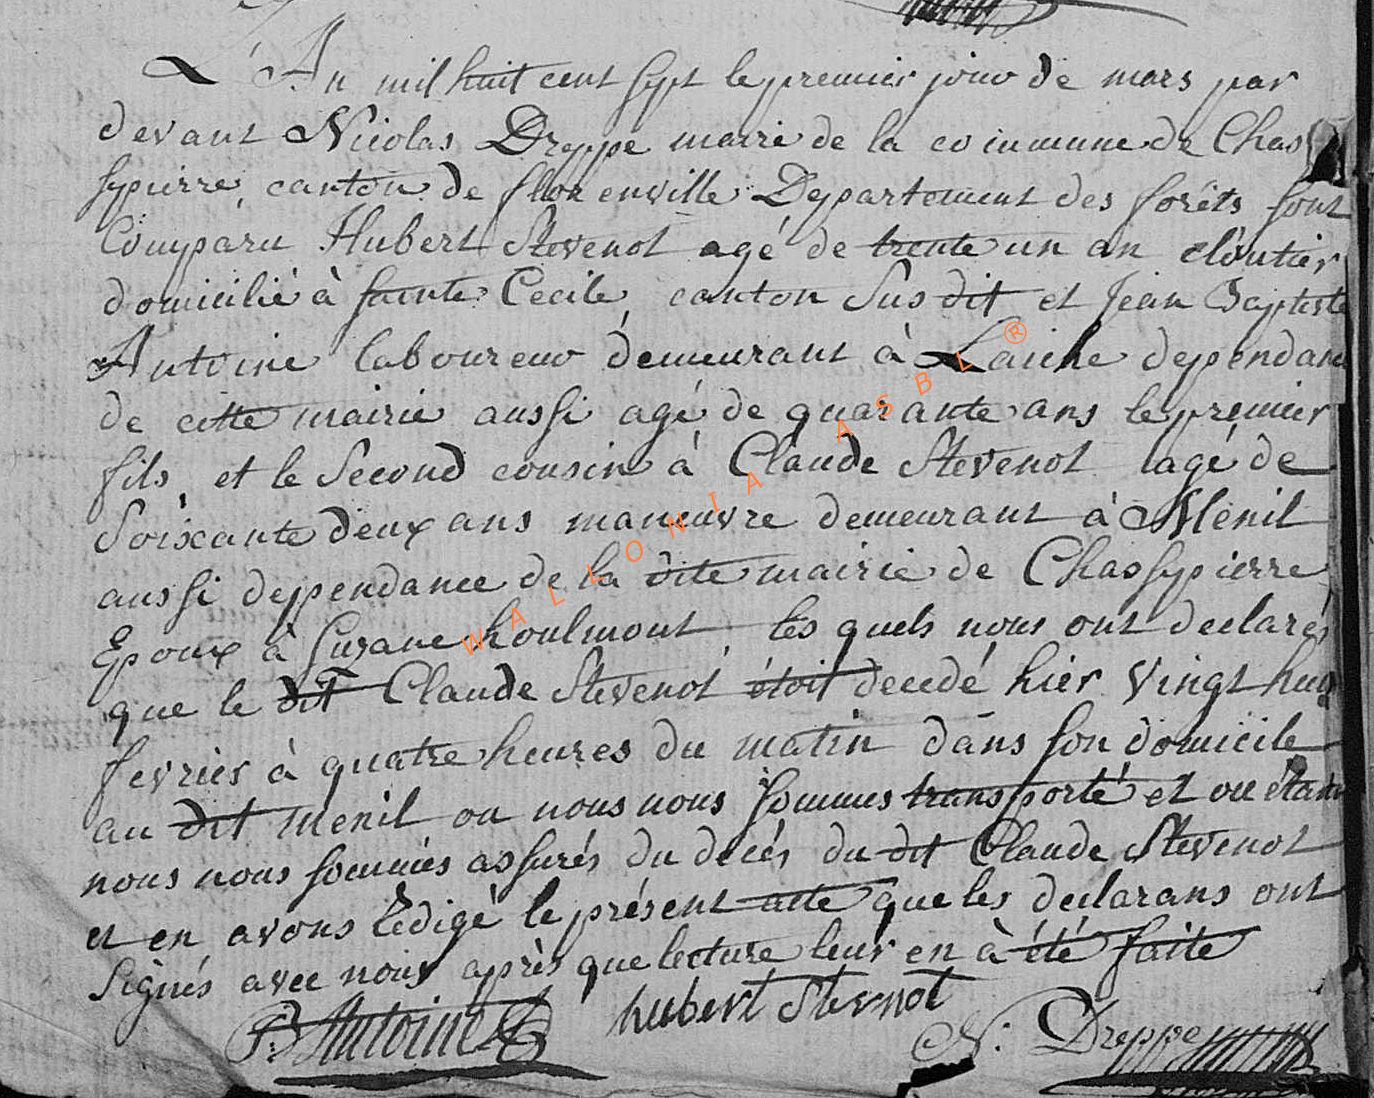 L'An mil huit cent sept le premier jour de mars par
devant Nicolas Dreppe maire de la commune de Chas
sepierre, canton de florenville Departement des forêts sont
Comparu Hubert Stevenot agé de trente un an cloutier
domicilié à sainte Cecile, canton Sus dit et Jean Baptiste
Antoine laboureur demeurant à Laiche dependance
de cette mairie aussi agé de quarante ans le premier
fils et le Second cousin à Claude Stevenot agé de
Soixante deux ans manœuvre demeurant à Ménil
aussi dependance de la dite mairie de Chassepierre
Epoux à Susane houlmont, les quels nous ont declarés
que le dit Claude Stevenot étoit decedé hier Vingt huit
fevrier à quatre heures du matin dans son domicile
au dit menil ou nous nous sommes transporté et ou étant
nous nous sommes assurés du decés du dit Claude Stevenot
et en avons Redigé le présent acte que les declarans ont
Signés avec nous après que lecture leur en à été faite
JB Antoine hubert Stevnot N. Dreppe
WALLONIA ASBL ®